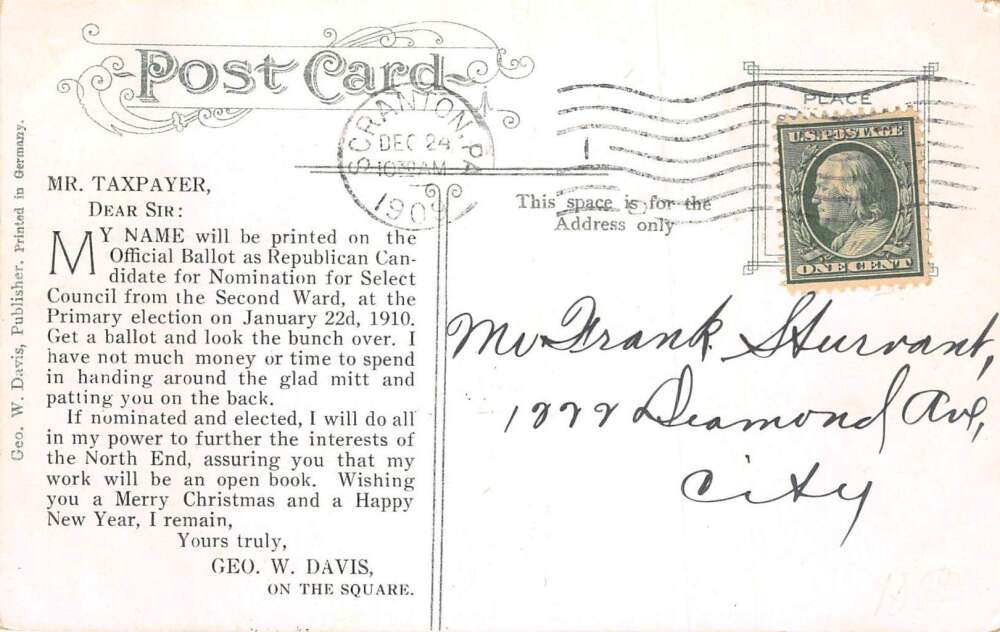 Post Card
SCRANTON, PA
DEC 24
10 30 AM
1909
1
PLACE
U.S. POSTAGE
ONE CENT
This space is for the
Address only
Geo. W. Davis, Publisher. Printed in Germany.
MR. TAXPAYER,
DEAR SIR:
MY NAME will be printed on the
Official Ballot as Republican Can-
didate for Nomination for Select
Council from the Second Ward, at the
Primary election on January 22d, 1910.
Get a ballot and look the bunch over. I
have not much money or time to spend
in handing around the glad mitt and
patting you on the back.
If nominated and elected, I will do all
in my power to further the interests of
the North End, assuring you that my
work will be an open book. Wishing
you a Merry Christmas and a Happy
New Year, I remain,
Yours truly,
GEO. W. DAVIS,
ON THE SQUARE.
Mr Frank Sturvant,
Diamond Ave,
City